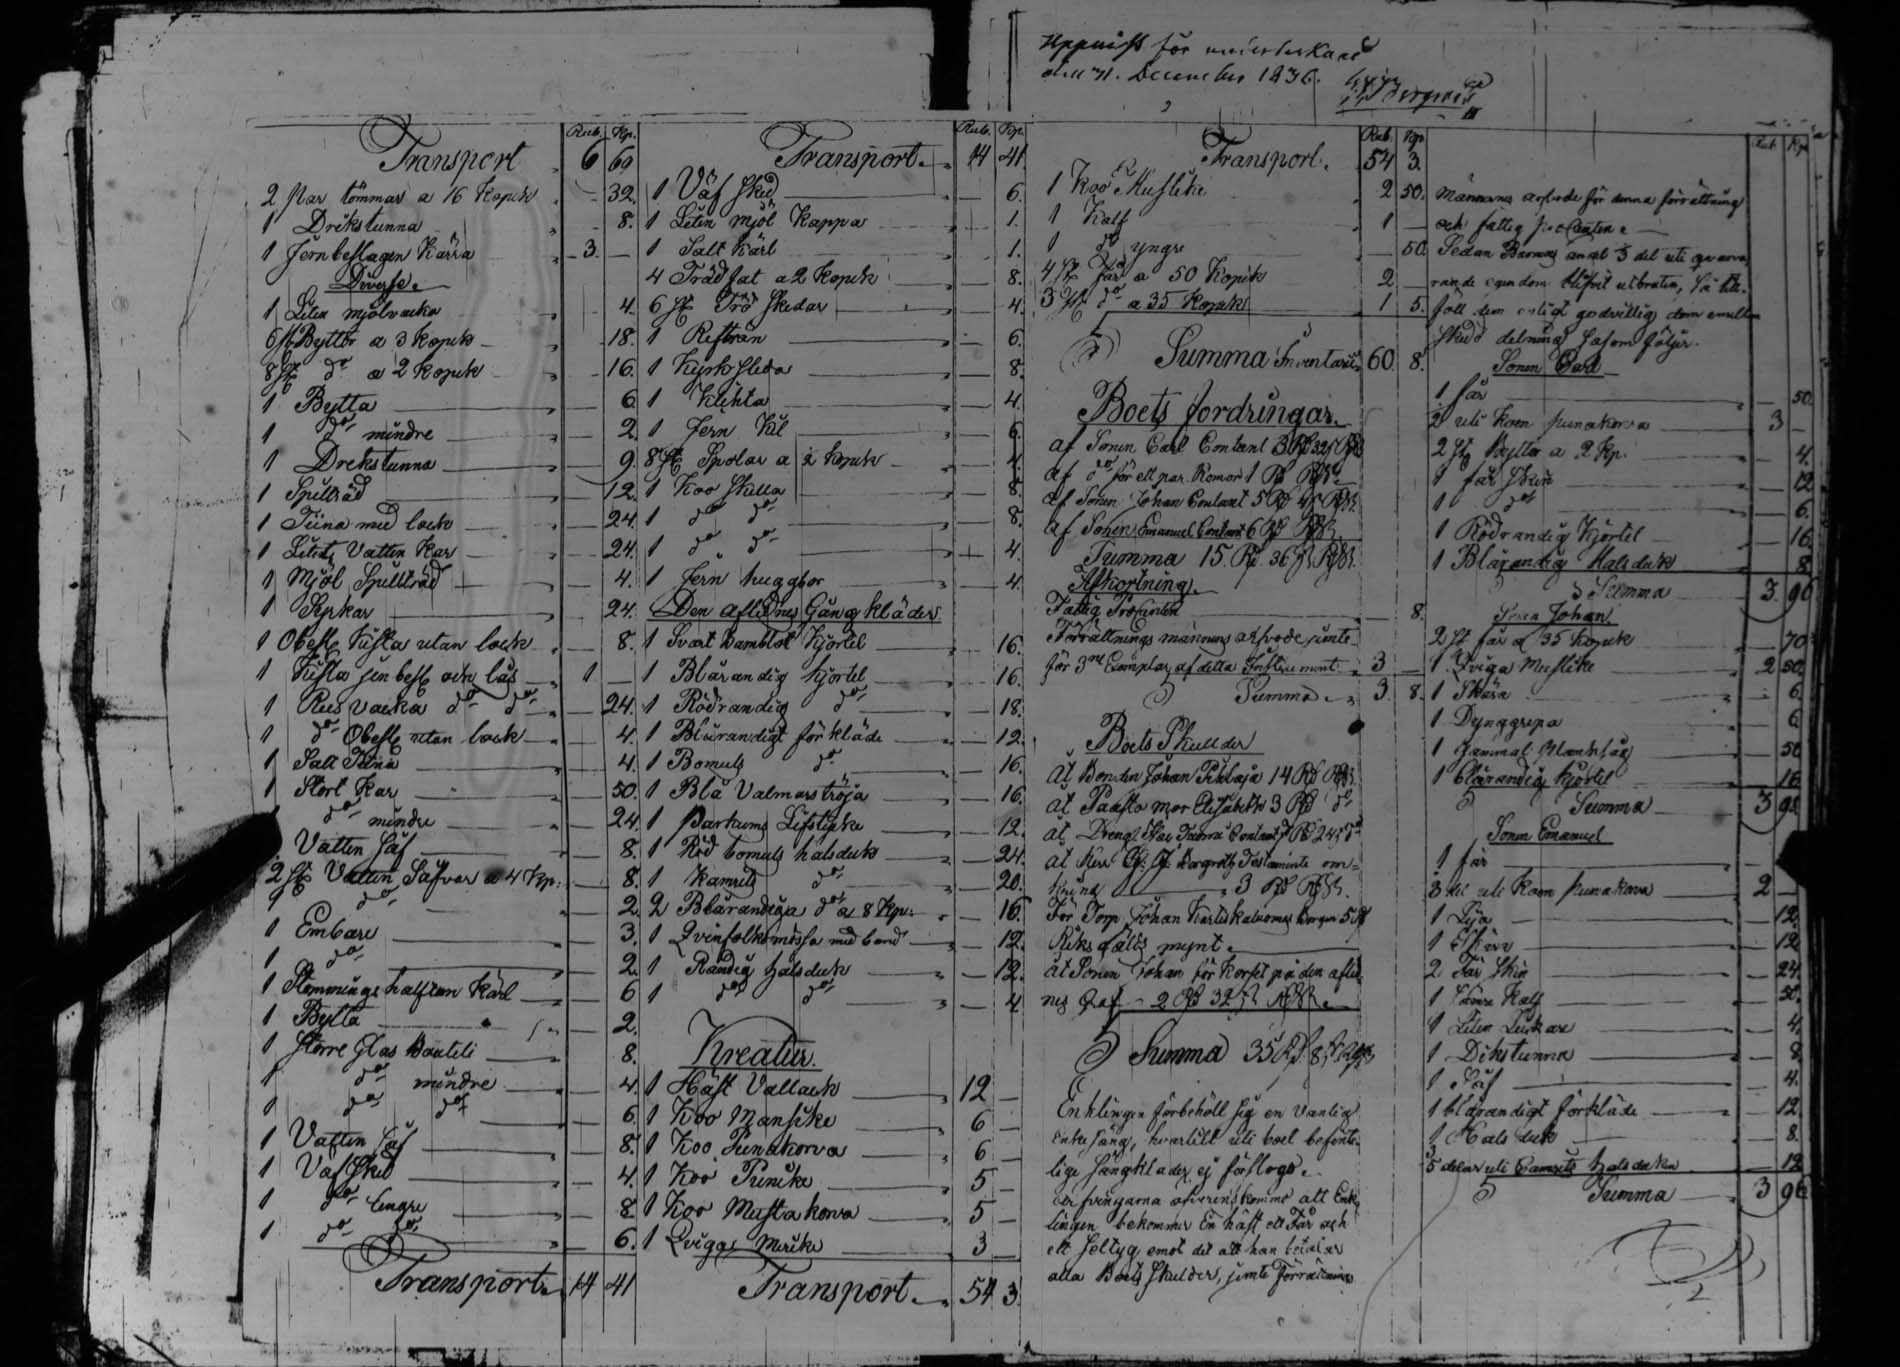 Uppvist för undertecknad
den 31. December 1836.
Rub. Kp.
Transport 6 60
2 Par tömmar a 16 Kopek 32.
1 Drikstunna 8.
1 Jernbeslagen Kärra 3. —
Diverse.
1 Liten mjölvacka 4.
6 st Byttor a 3 Kopek 18.
8 st do a 2 Kopek 16.
1 Bytta 6
1 do mindre 2.
1 Drekstunna 9.
1 Spillträd 12.
1 Tiina med lock 24.
1 Litet Vatten Kar 24
1 Mjöl Spillträd 4.
1 Syrkar 24.
1 Obesl. Kista utan lock 8.
1 Kista jernbesl. och lås 1 —
1 Rees vacka do do 24.
1 do Obesl. utan lock 4.
1 Salt Tiina 4.
1 Stort Kar 50.
1 do mindre 24.
1 Vatten Så 8.
2 st Vatten Såfvar a 4 Kp: 8.
1 do 2.
1 Embare 3.
1 do 2.
1 Halftun Kärl 6
1 Bytta 2.
1 större Glas Bouteli 8.
1 do mindre 4.
1 do do 6.
1 Vatten Så 8.
1 Väfsked 4.
1 do Längre 8
1 do do 6.
Transport 14 41
Rub. Kp.
Transport 14 41.
1 Väf Sked 6.
1 Liten Mjöl Kappa 1.
1 Salt Kärl 1.
4 Trädfat a 2 Kopek 8.
6 st Trä Skedar 4.
1 Refträn 6.
1 Kyrk Släda 8.
1 Klihta 4.
1 Jern Kil 6.
8 st Spolar a ½ Kopek 4.
1 Koo Skälla 8.
1 do do 8.
1 do do 4.
1 Jern huggbor 4.
Den Aflidnes Gång kläder.
1 Svart Kamblot Kjortel 16.
1 Blårandig Kjortel 16.
1 Rödrandig do 18.
1 Blårandigt förkläde 12.
1 Bomuls do 16.
1 Blå Valmarströja 16.
1 Parkums Lifstycke 12.
1 Röd bomuls halsduk 24.
1 Kamrits do 20.
2 Blårandiga do a 8 Kp: 16.
1 Qvinfolksmössa med band 12.
1 Randig halsduk 12.
1 do do 4
Kreatur.
1 Häst Vallack 12 —
1 Koo Mansike 6 —
1 Koo Punakorva 6 —
1 Koo Punike 5 —
1 Koo Musta korva 5 —
1 Qviga Merike 3 —
Transport 54 3.
Rub. Kp.
Transport. 54 3.
1 Koo Mustike 2 50.
1 Kalf 1 —
1 do yngre 50.
4 st Får a 50 Kopek 2 —
3 st do a 35 Kopek 1 5.
Summa Inventarie 60. 8.
Boets fordringar.
af Sonen Carl Contant 3 Rd 32
af do för ett par Komor 1 Rd
af Sonen Johan Contant 5 Rd 4
af Sonen Emanuel Contant 6 Rd
Summa 15. Rd. 36
Afkortning.
Fattig Procenten 8.
Förrättnings männens arfvode jemte
för 3ne Exemplar af detta Instrument 3 —
Summa 3. 8.
Boets Skulder
At Bonden Johan Pihlaja 14 Rd
at Elisabeth 3 Rd do
at Dreng 24
at Margreth Testamente om-
3 Rd
För Torp. Johan 5
Riksgälds mynt.
at Sonen Johan för Korset på den aflid-
nes Graf 2 Rd 32
Summa 35 Rd 8
Enklingen förbehöll sig en vanlig
enke säng, hvartill uti boet befint-
lige sängkläder ej förslogo.
arfvingarna öfverenskommo att Enk-
lingen bekommer En häst ett Får och
ett seltyg emot det att han betalar
alla Boets skulder, jemte förrättnings
Rub. Kp.
männernes arfvode för denna förrättning
och fattig procenten.
Sedan Barnens andel 3 del uti qvarva-
rande egendom blifvit utbruten, så till-
föll dem enligt godvillig dem emellan
skedd delning såsom följer.
Sonen Carl
1 får 50.
2 uti Koon punakorva 3 —
2 st Bytta a 2 Kp. 4.
1 får Skin 12
1 do 6.
1 Rödrandig Kjortel 16
1 Blårandig Halsduk 8
Summa 3. 96
Sonen Johan.
2 st får a 35 Kopek 70
1 Qviga Mustike 2 50.
1 Skära 6.
1 Dynggrepa 6
1 gammal 50
1 blårandig Kjortel 16
Summa 3 98.
Sonen Emanuel
1 får
3 del uti Koon punakorva 2 —
1 Lija 12.
1 12
2 Får Skin 24
1 Kalf 50.
1 Liten 4.
1 Dikstunna 8
1 Så 4.
1 blårandigt förkläde 12
1 Halsduk 8.
5 delar uti Camrits halsduken 12
Summa 3 96